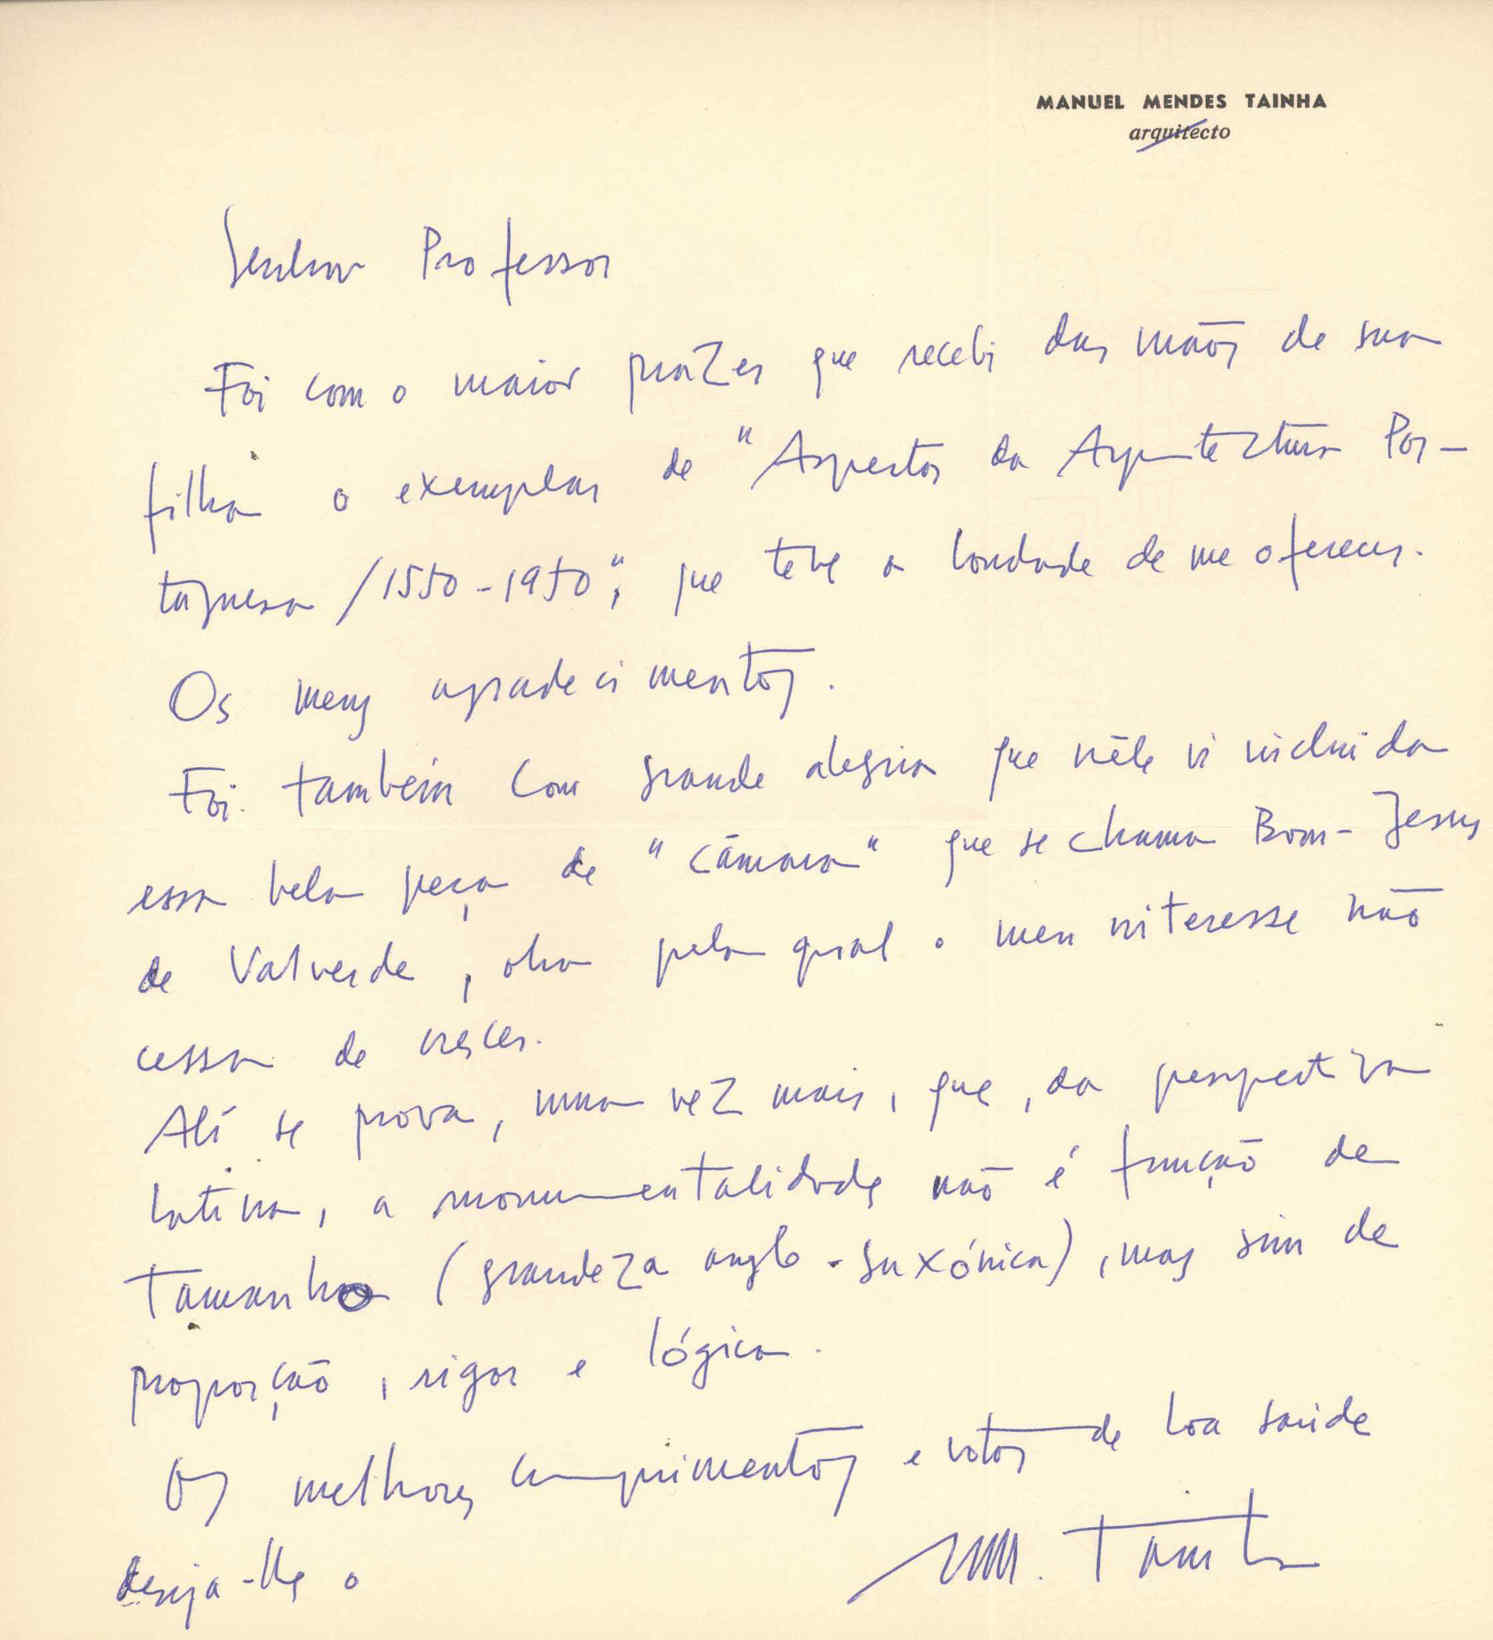 MANUEL MENDES TAINHA
arquitecto
Senhor Professor
Foi com o maior prazer que recebi das mãos de sua
filha o exemplar de "Aspectos da Arquitectura Por-
tuguesa /1550-1950", que teve a bondade de me oferecer.
Os meus agradecimentos.
Foi também com grande alegria que nêle vi incluida
essa bela peça de "câmara" que se chama Bom-Jesus
de Valverde, obra pela qual o meu interesse não
cessa de crescer.
Alí se prova, uma vez mais, que, da perspectiva
latina, a monumentalidade não é função de
tamanho (grandeza anglo-saxónica), mas sim de
proporção, rigor e lógica.
Os melhores cumprimentos e votos de boa saúde
deseja-lhe o
M. Tainha